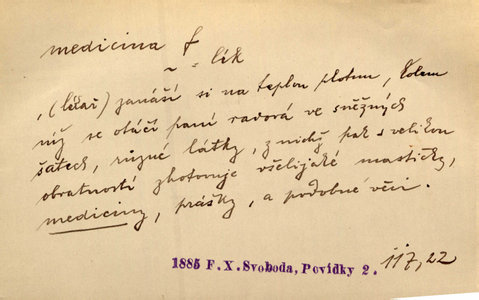 medicina f
~ = lék
, (lékař) zanáší si na teplou plotnu, kolem
níž se otáčí paní radová ve sněžných
šatech, různé látky, z nichž pak s velikou
obratností zhotovuje všelijaké mastičky,
mediciny, prášky, a podobné věci.
1885 F. X. Svoboda, Povídky 2. 117, 22